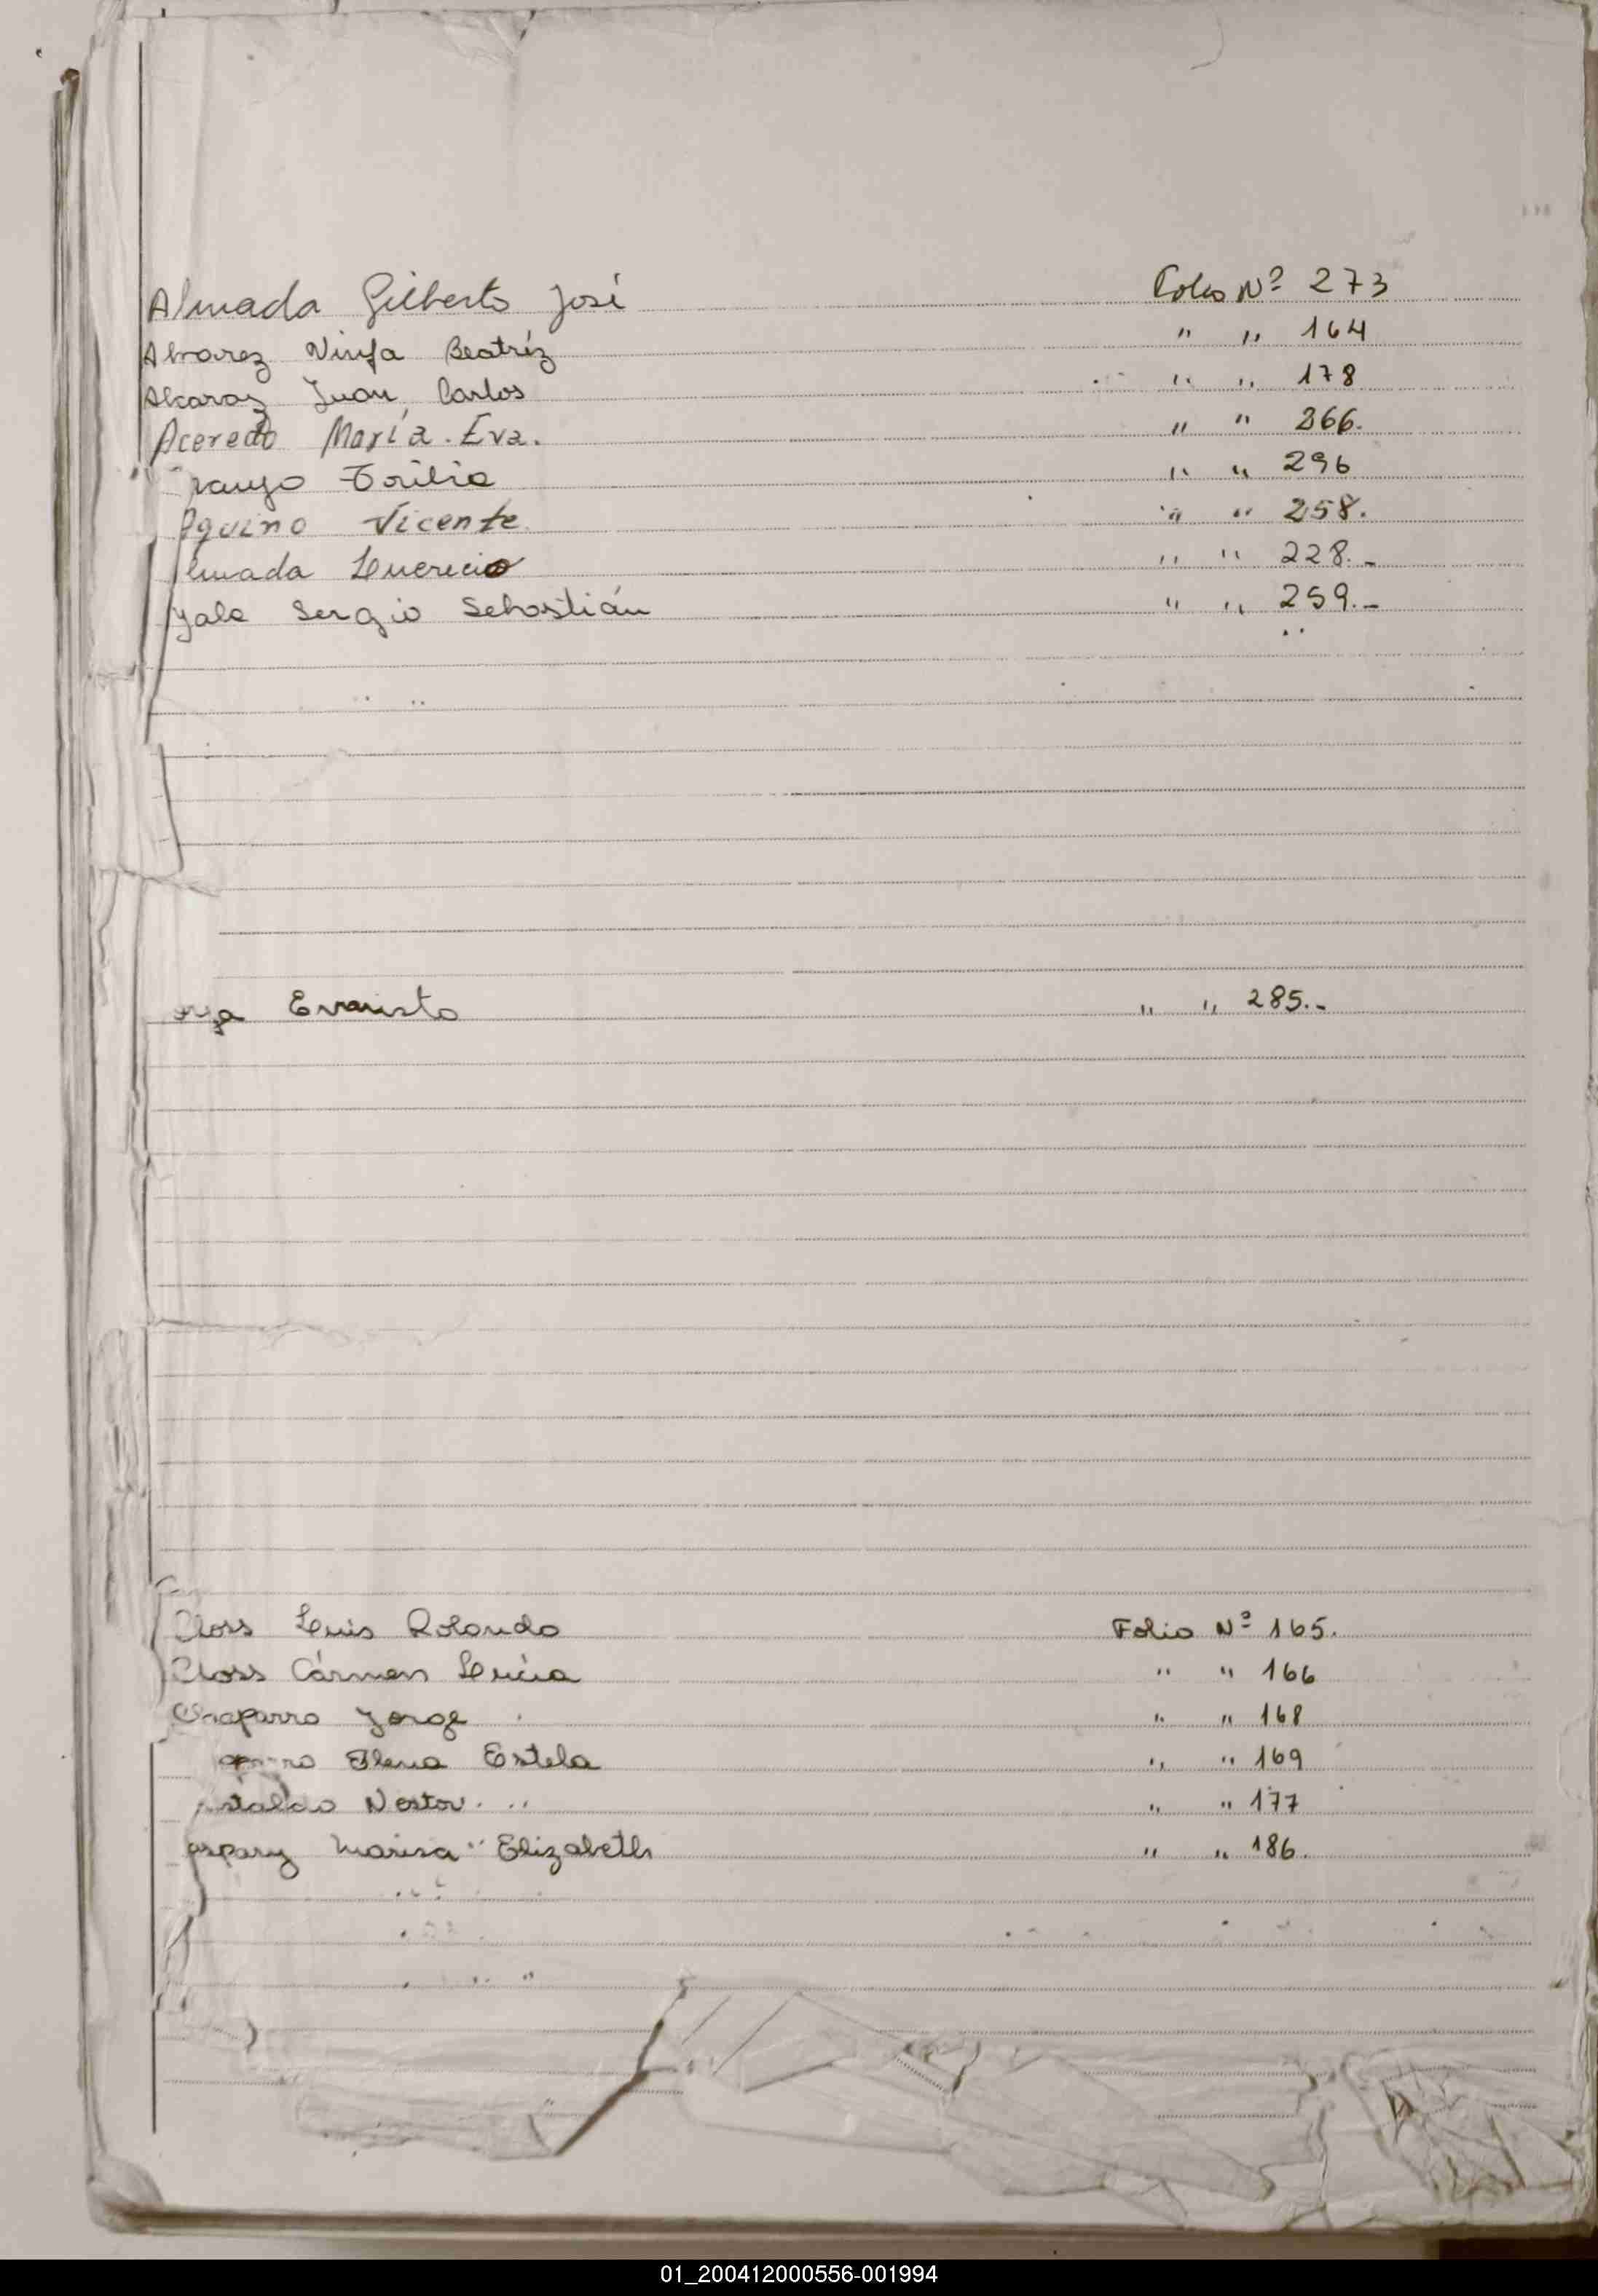 Almada Gilberto José Folio Nº 273
Alvarez Ninfa Beatríz " " 164
Alcaraz Juan Carlos " " 178
Acevedo María. Eva. " " 266.
296
Aquino Vicente " " 258.
lmada " " 228.-
yala Sergio Sebastián " " 259.-
Evaristo " " 285.-
Closs Luis Rolando Folio Nº 165.
Closs Cármen Lucia " " 166
Chaparro Jorge " " 168
Elena Estela " " 169
Nestor " " 177
aspary Marisa Elizabeth " " 186.
01_200412000556-001994